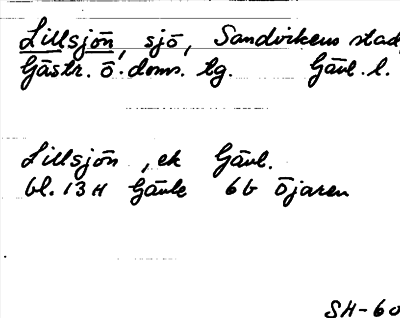 Lillsjön, sjö, Sandvikens stad,
Gästr. ö. doms. tg. Gävl. l.
Lillsjön , ek Gävl.
bl. 13 H Gävle 6b Öjaren
SH-60